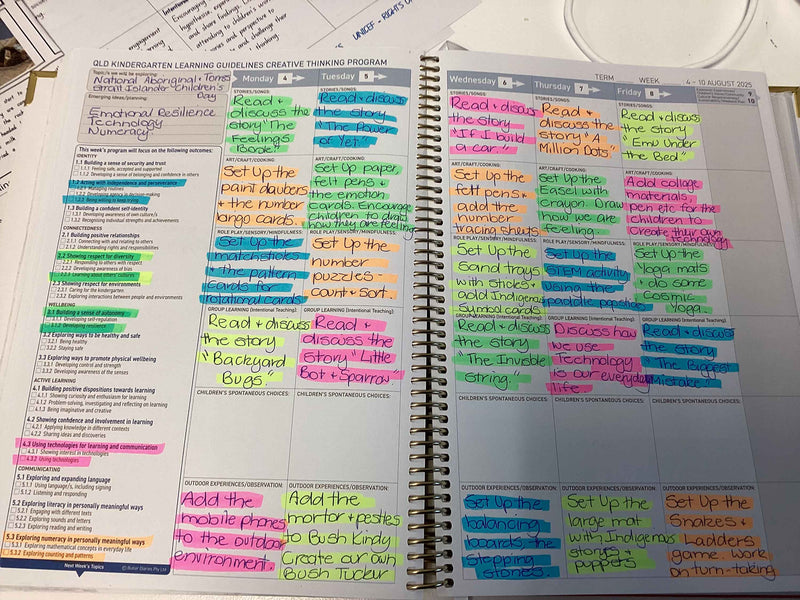 engagement
Encouraging
hypothesise
and share findings.
attending to children's
and perspective to
and challenge their
thinking
UNICEF - RIGHTS O
QLD KINDERGARTEN LEARNING GUIDELINES CREATIVE THINKING PROGRAM
Topic/s we will be exploring:
National Aboriginal + Torres
Strait Islander Children's
Day
Emerging ideas/planning:
Emotional Resilience
Technology
Numeracy
This week's program will focus on the following outcomes:
IDENTITY
1.1 Building a sense of security and trust
1.1.1 Feeling safe, accepted and supported
1.1.2 Developing a sense of belonging and confidence in others
1.2 Acting with independence and perseverance
1.2.1 Managing routines
1.2.3 Being willing to keep trying
1.3 Building a confident self-identity
1.3.1 Developing awareness of own culture/s
1.3.2 Recognising individual strengths and achievements
CONNECTEDNESS
2.1 Building positive relationships
2.1.1 Connecting with and relating to others
2.1.2 Understanding rights and responsibilities
2.2 Showing respect for diversity
2.2.1 Responding to others with respect
2.2.2 Developing awareness of bias
2.2.3 Learning about others' cultures
2.3 Showing respect for environments
2.3.1 Caring for the kindergarten
2.3.2 Exploring interactions between people and environments
WELLBEING
3.1 Building a sense of autonomy
3.1.1 Developing self-regulation
3.1.2 Developing resilience
3.2 Exploring ways to be healthy and safe
3.2.1 Being healthy
3.2.2 Staying safe
3.3 Exploring ways to promote physical wellbeing
3.3.1 Developing control and strength
3.3.2 Developing awareness of the senses
ACTIVE LEARNING
4.1 Building positive dispositions towards learning
4.1.1 Showing curiosity and enthusiasm for learning
4.1.2 Problem-solving, investigating and reflecting on learning
4.1.3 Being imaginative and creative
4.2 Showing confidence and involvement in learning
4.2.1 Applying knowledge in different contexts
4.2.2 Sharing ideas and discoveries
4.3 Using technologies for learning and communication
4.3.1 Showing interest in technologies
4.3.2 Using technologies
COMMUNICATING
5.1 Exploring and expanding language
5.1.1 Using language/s, including signing
5.1.2 Listening and responding
5.2 Exploring literacy in personally meaningful ways
5.2.1 Engaging with different texts
5.2.2 Exploring sounds and letters
5.2.3 Exploring reading and writing
5.3 Exploring numeracy in personally meaningful ways
5.3.1 Exploring mathematical concepts in everyday life
5.3.2 Exploring counting and patterns
Next Week's Topics
© Butler Diaries Pty Ltd
Monday 4
STORIES/SONGS:
Read +
discuss the
story "The
Feelings
Book."
ART/CRAFT/COOKING:
Set Up the
paint daubers
+ the number
bingo cards.
ROLE PLAY/SENSORY/MINDFULNESS:
Set Up the
matchsticks
+ the pattern
cards for
rotational cards
GROUP LEARNING (Intentional Teaching):
Read + discuss
the story
"Backyard
Bugs."
CHILDREN'S SPONTANEOUS CHOICES:
OUTDOOR EXPERIENCES/OBSERVATION:
Add the
mobile phones
to the outdoor
environment.
Tuesday 5
STORIES/SONGS:
Read + discuss
the story
"The Power
of Yet"
ART/CRAFT/COOKING:
Set Up paper,
felt pens +
the emotion
cards. Encourage
children to draw
how they are feeling
ROLE PLAY/SENSORY/MINDFULNESS:
Set Up the
number
puzzles -
count + sort.
GROUP LEARNING (Intentional Teaching):
Read +
discuss the
story "Little
Bot + Sparrow"
CHILDREN'S SPONTANEOUS CHOICES:
OUTDOOR EXPERIENCES/OBSERVATION:
Add the
mortar + pestles
to Bush Kindy
Create our own
Bush Tucker
TERM WEEK 4 - 10 AUGUST 2025
Wednesday 6
STORIES/SONGS:
Read + discuss
the story
"If I build
a car."
ART/CRAFT/COOKING:
Set Up the
felt pens +
add the
number
tracing sheets
ROLE PLAY/SENSORY/MINDFULNESS:
Set Up the
Sand trays
with sticks +
add Indigenous
Symbol cards
GROUP LEARNING (Intentional Teaching):
Read + discuss
the story
"The Invisible
String."
CHILDREN'S SPONTANEOUS CHOICES:
OUTDOOR EXPERIENCES/OBSERVATION:
Set Up the
balancing
boards, the
Stepping
Stones.
Thursday 7
STORIES/SONGS:
Read +
discuss the
story "A
Million Dots."
ART/CRAFT/COOKING:
Set Up the
Easel with
crayon. Draw
how we are
feeling.
ROLE PLAY/SENSORY/MINDFULNESS:
Set Up the
STEM activity
using the
paddle popsticks
GROUP LEARNING (Intentional Teaching):
Discuss how
we use
Technology
is our everyday
life.
CHILDREN'S SPONTANEOUS CHOICES:
OUTDOOR EXPERIENCES/OBSERVATION:
Set Up the
large mat
with Indigenous
stones +
puppets
Friday 8
STORIES/SONGS:
Read +
discuss
the story
"Emu Under
the Bed."
ART/CRAFT/COOKING:
Add collage
materials,
pen etc for the
children to
Create their own
technology
ROLE PLAY/SENSORY/MINDFULNESS:
Set Up the
Yoga mats
+ do some
Cosmic
Yoga.
GROUP LEARNING (Intentional Teaching):
Read + discuss
the story
"The Biggest
Mistake."
CHILDREN'S SPONTANEOUS CHOICES:
OUTDOOR EXPERIENCES/OBSERVATION:
Set Up the
Snakes +
Ladders
game. Work
on turn-taking
9
10